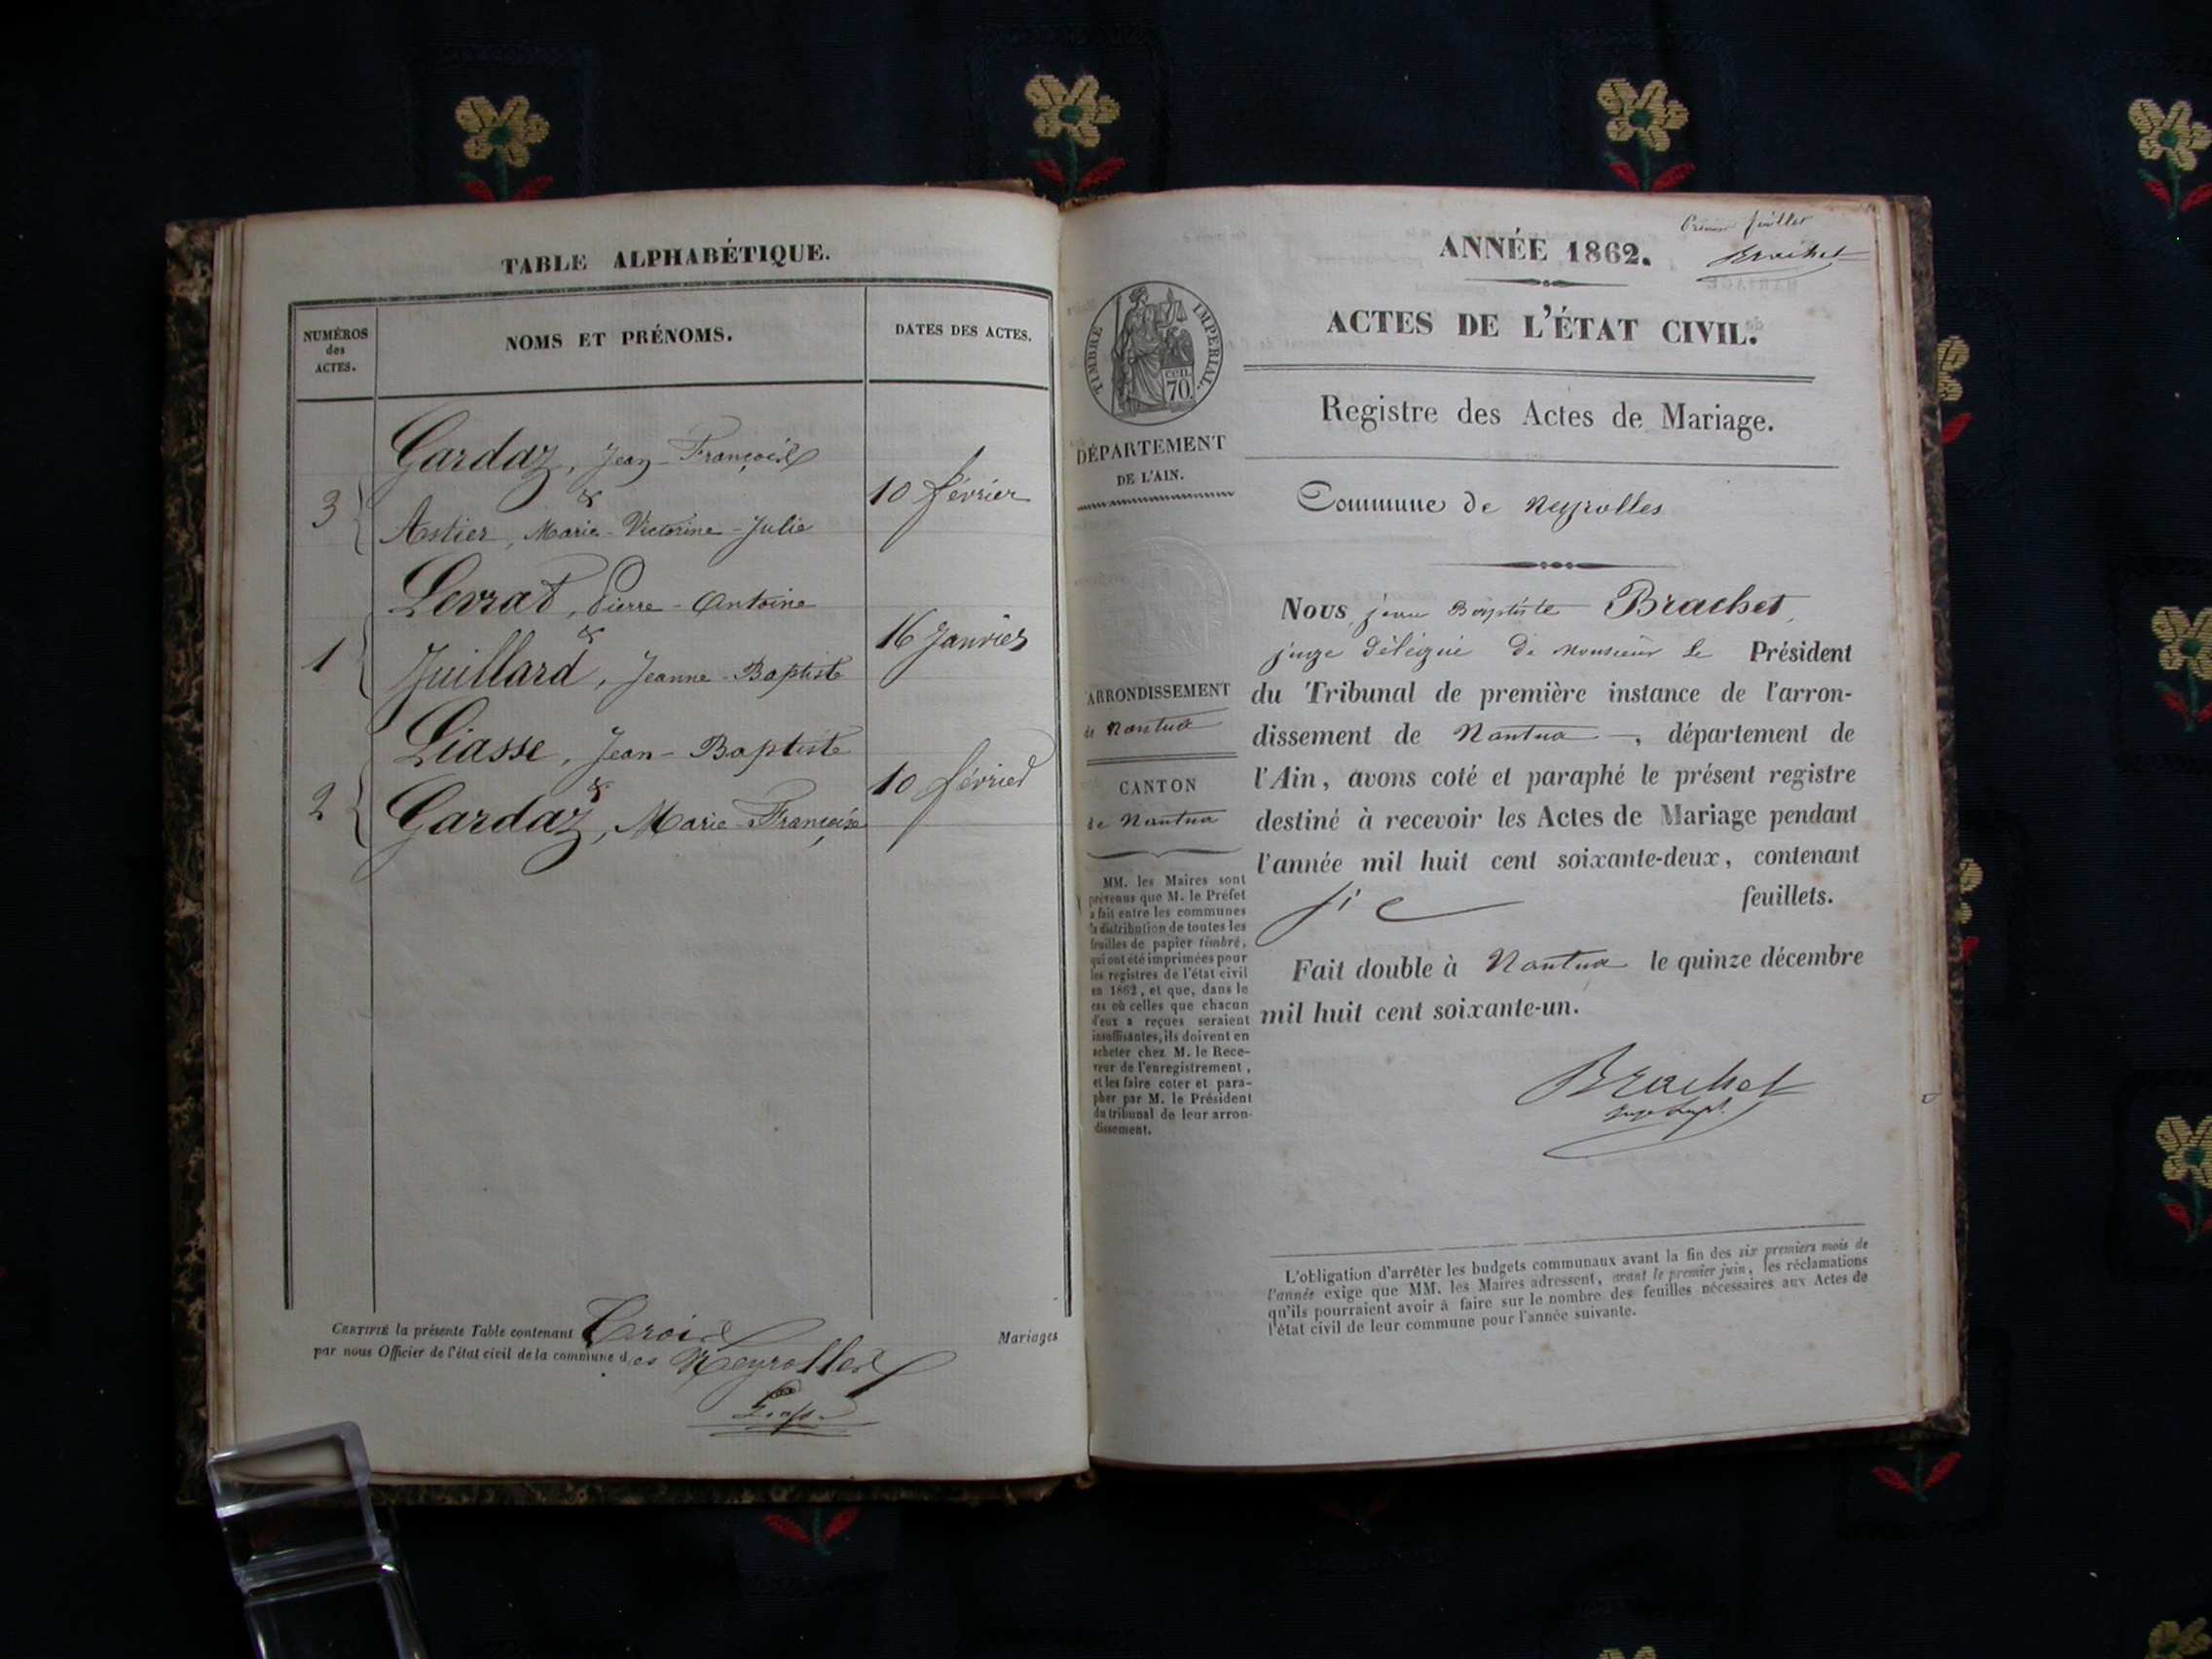 TABLE ALPHABÉTIQUE.
NUMÉROS
des
ACTES.
NOMS ET PRÉNOMS.
DATES DES ACTES.
Gardaz, Jean-François
&
3
Astier, Marie-Victorine-Julie
10 février
Levrat, Pierre-Antoine
&
1
Juillard, Jeanne-Baptiste
16 Janvier
Liasse, Jean-Baptiste
&
2
Gardaz, Marie-Françoise
10 février
CERTIFIÉ la présente Table contenant Trois Mariages
par nous Officier de l'état civil de la commune des Neyrolles
Premier feuillet
Brachet
ANNÉE 1862.
ACTES DE L'ÉTAT CIVIL.
TIMBRE IMPERIAL.
cen.
70
DÉPARTEMENT
DE L'AIN.
Registre des Actes de Mariage.
Commune de Neyrolles
Nous, jean Baptiste Brachet,
juge délégué de Monsieur le Président
du Tribunal de première instance de l'arron-
dissement de Nantua, département de
l'Ain, avons coté et paraphé le présent registre
destiné à recevoir les Actes de Mariage pendant
l'année mil huit cent soixante-deux, contenant
feuillets.
Fait double à Nantua le quinze décembre
mil huit cent soixante-un.
Brachet
ARRONDISSEMENT
de Nantua
CANTON
de Nantua
MM. les Maires sont
prévenus que M. le Préfet
a fait entre les communes
la distribution de toutes les
feuilles de papier timbré,
qui ont été imprimées pour
les registres de l'état civil
en 1862, et que, dans le
cas où celles que chacun
d'eux a reçues seraient
insuffisantes, ils doivent en
acheter chez M. le Rece-
veur de l'enregistrement,
et les faire coter et para-
pher par M. le Président
du tribunal de leur arron-
dissement.
L'obligation d'arrêter les budgets communaux avant la fin des six premiers mois de
l'année exige que MM. les Maires adressent, avant le premier juin, les réclamations
qu'ils pourraient avoir à faire sur le nombre des feuilles nécessaires aux Actes de
l'état civil de leur commune pour l'année suivante.